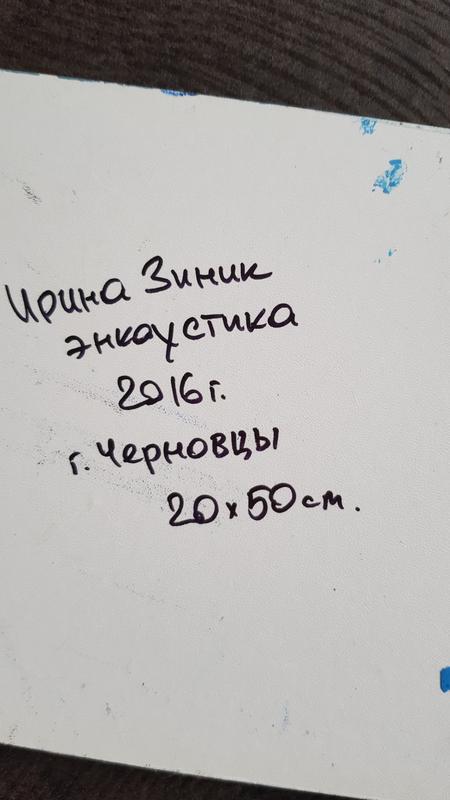 Ирина Зиник
энкаустика
2016 г.
г. Черновцы
20 х 50 см.